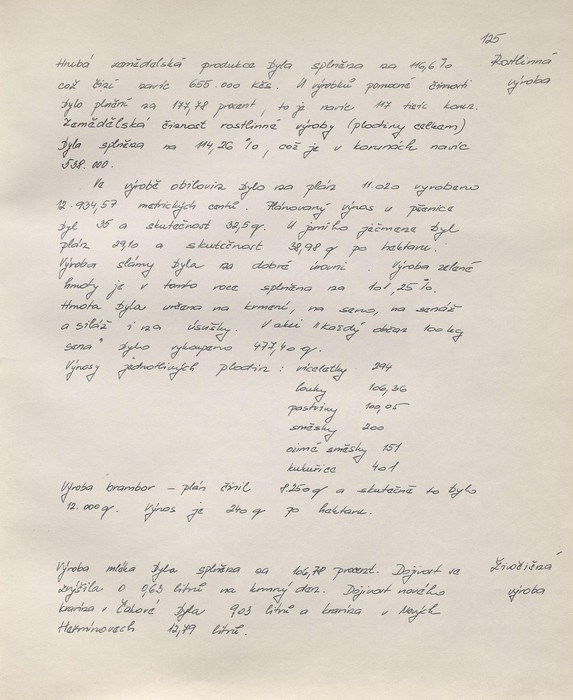 125
Hrubá zemědělská produkce byla splněna na 116,6 % Rostlinná
což činí navíc 655.000 kčs. U výrobků pomocné činnosti výroba
bylo plnění na 177,78 procent, to je navíc 117 tisíc korun.
Zemědělská činnost rostlinné výroby (plodiny celkem)
byla splněna na 114,26 %, což je v korunách navíc
538.000.
Ve výrobě obilovin bylo na plán 11.020 vyrobeno
12.934,57 metrických centů. Plánovaný výnos u pšenice
byl 35 a skutečnost 32,5 q. U jarního ječmene byl
plán 29,10 a skutečnost 38,98 q po hektaru.
Výroba slámy byla na dobré úrovni. Výroba zelené
hmoty je v tomto roce splněna na 101,25 %.
Hmota byla určena na krmení, na seno, na senáž
a siláž i na úsušky. V akci "každý občan 100 kg
sena" bylo vykoupeno 477,40 q.
Výnosy jednotlivých plodin : víceletky 294
louky 106,36
pastviny 100,05
směsky 200
ozimé směsky 151
kukuřice 401
Výroba brambor – plán činil 8.250 q a skutečně to bylo
12.000 q. Výnos je 240 q po hektaru.
Výroba mléka byla splněna na 106,78 procent. Dojivost se Živočišná
zvýšila o 0,63 litrů na krmný den. Dojivost nového výroba
kravína v Čakové byla 9,03 litrů a kravína v Nových
Heřminovech 12,79 litrů.